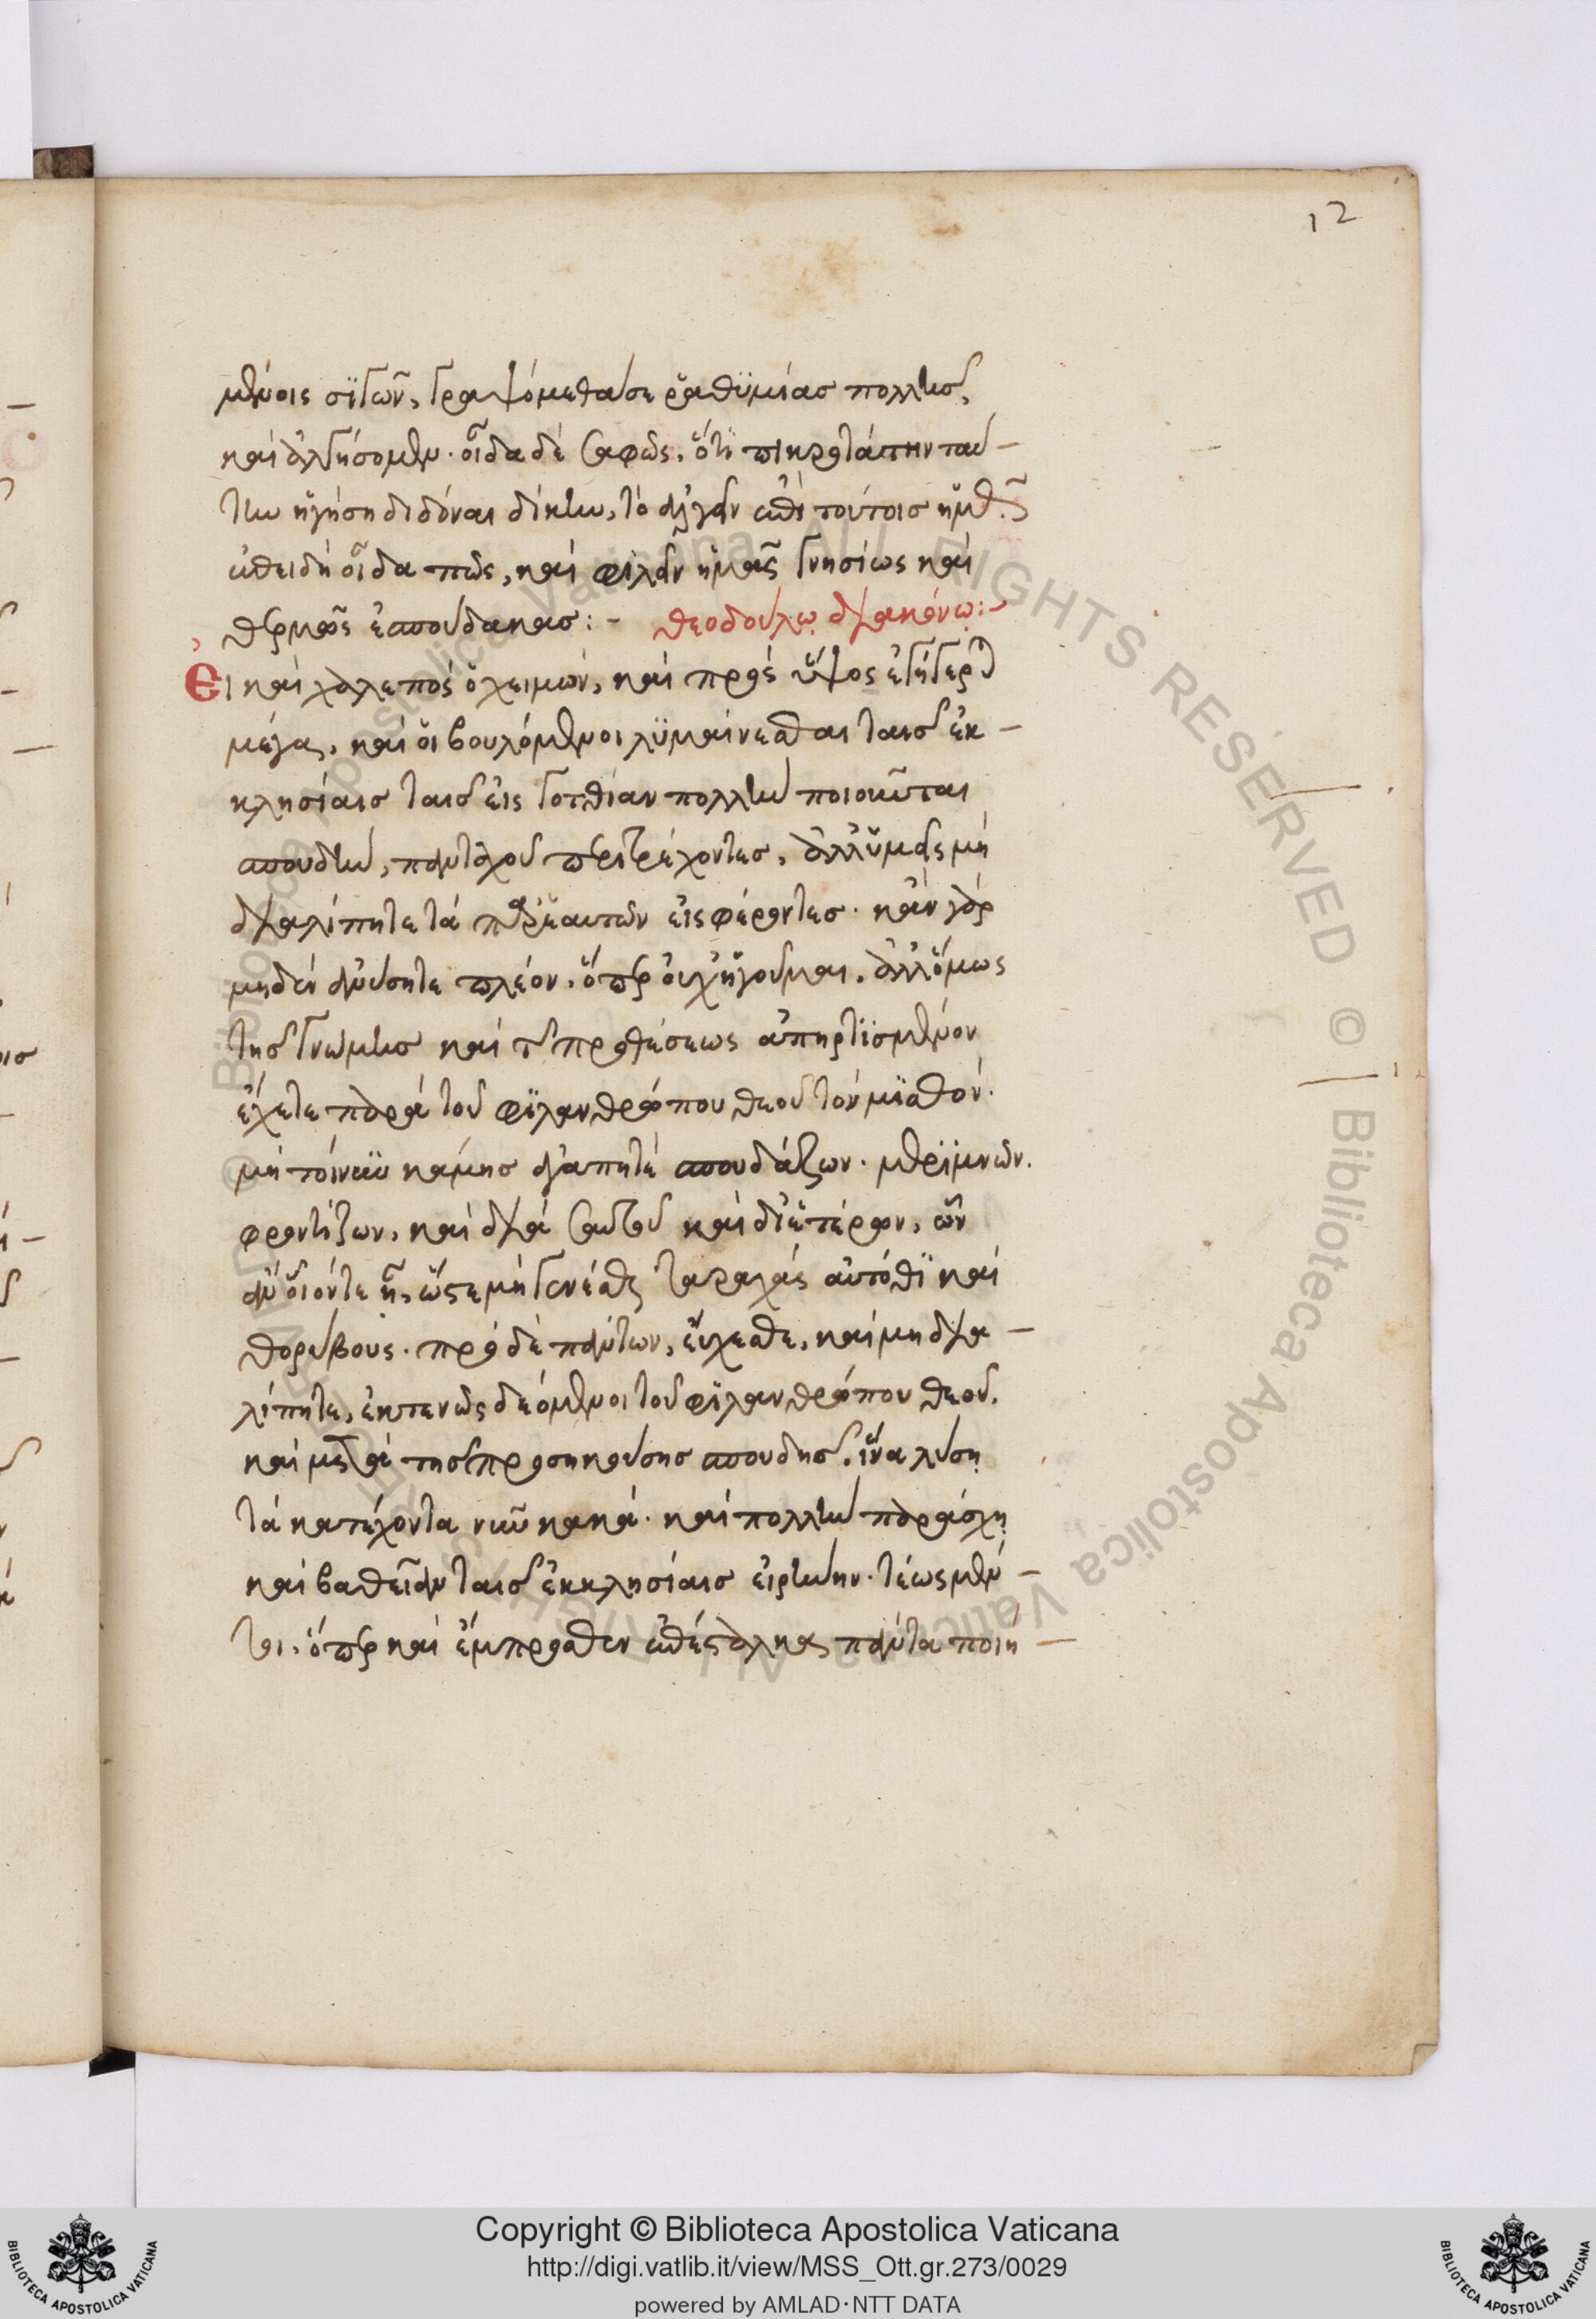 12
μένοις σιγῶν, γραψόμεθά σε ῥαθυμίας πολλῆς,
καὶ ἀλγήσομεν. οἶδα δὲ σαφῶς, ὅτι πικροτάτην ταύ-
την ἡγήσῃ διδόναι δίκην, τὸ ἀλγεῖν ἐπὶ τούτοις ἡμᾶς.
ἐπειδὴ οἶδα πῶς, καὶ φιλεῖν ἡμᾶς γνησίως καὶ
θερμῶς ἐσπούδακας:- Θεοδούλῳ διακόνῳ:-
Εἰ καὶ χαλεπὸς ὁ χειμών, καὶ πρὸς ὕψος ἐγήγερται
μέγας, καὶ οἱ βουλόμενοι λυμαίνεσθαι ταῖς ἐκ-
κλησίαις ταῖς εἰς Γοτθίαν πολλὴν ποιοῦνται
σπουδήν, πανταχοῦ περιτρέχοντες, ἀλλ' ὑμεῖς μὴ
διαλίπητε τὰ παρ' ἑαυτῶν εἰσφέροντες. κἂν γὰρ
μηδὲν ἀνύσητε πλέον, ὅπερ οὐχ ἡγοῦμαι, ἀλλ' ὅμως
τῆς γνώμης καὶ τῆς προθέσεως ἀπηρτισμένον
ἔχετε παρὰ τοῦ φιλανθρώπου θεοῦ τὸν μισθόν.
μὴ τοίνυν κάμῃς ἀγαπητὲ σπουδάζων. μεριμνῶν.
φροντίζων, καὶ διὰ σαυτοῦ καὶ δι' ἑτέρων, ὧν
ἂν οἷόν τε ᾖ, ὥστε μὴ γενέσθαι ταραχὰς αὐτόθι καὶ
θορύβους. πρὸ δὲ πάντων, εὔχεσθε, καὶ μὴ δια-
λίπητε, ἐκτενῶς δεόμενοι τοῦ φιλανθρώπου θεοῦ.
καὶ μετὰ τῆς προσηκούσης σπουδῆς. ἵνα λύσῃ
τὰ κατέχοντα νῦν κακά. καὶ πολλὴν παράσχῃ
καὶ βαθεῖαν ταῖς ἐκκλησίαις εἰρήνην. τέως μέν-
τοι, ὅπερ καὶ ἔμπροσθεν ἐπέσταλκα, πάντα ποιή-
Copyright © Biblioteca Apostolica Vaticana
http://digi.vatlib.it/view/MSS_Ott.gr.273/0029
powered by AMLAD·NTT DATA